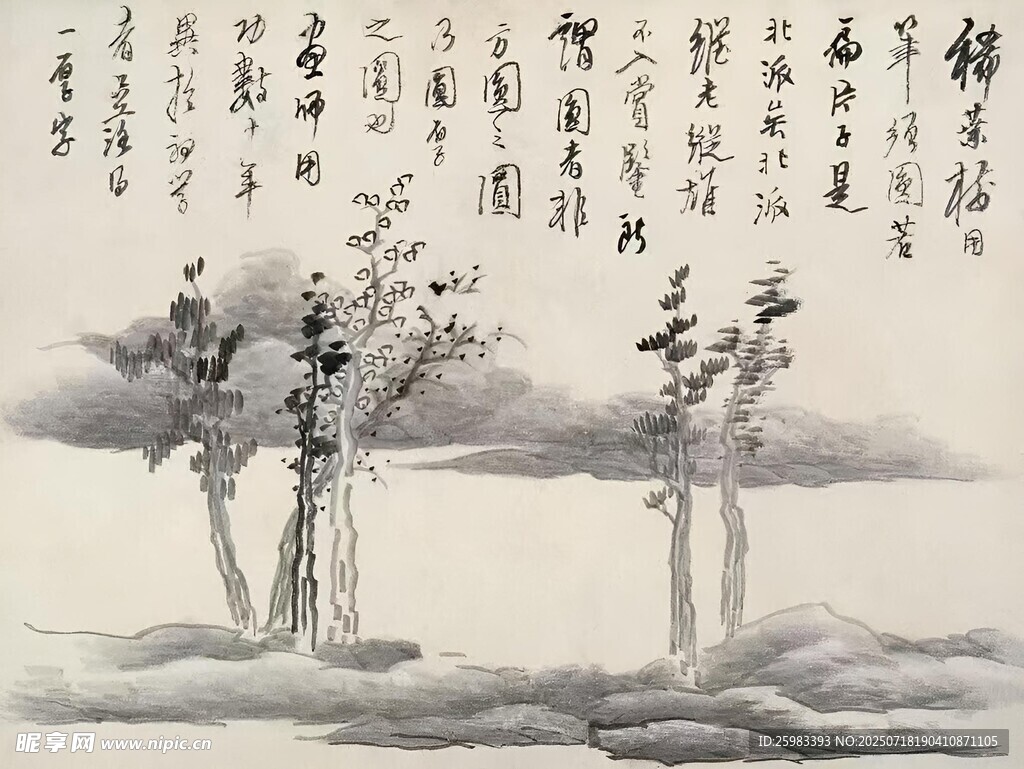 稀葉樹用
筆須圓若
扁片子是
北派矣北派
縱老縱雄
不入賞鑒所
謂圓者非
方圓之圓
乃圓厚
之圓也
畫師用
功數十年
異於初學
者
一厚字
昵享网 www.nipic.cn
ID:25983393 NO:20250718190410871105